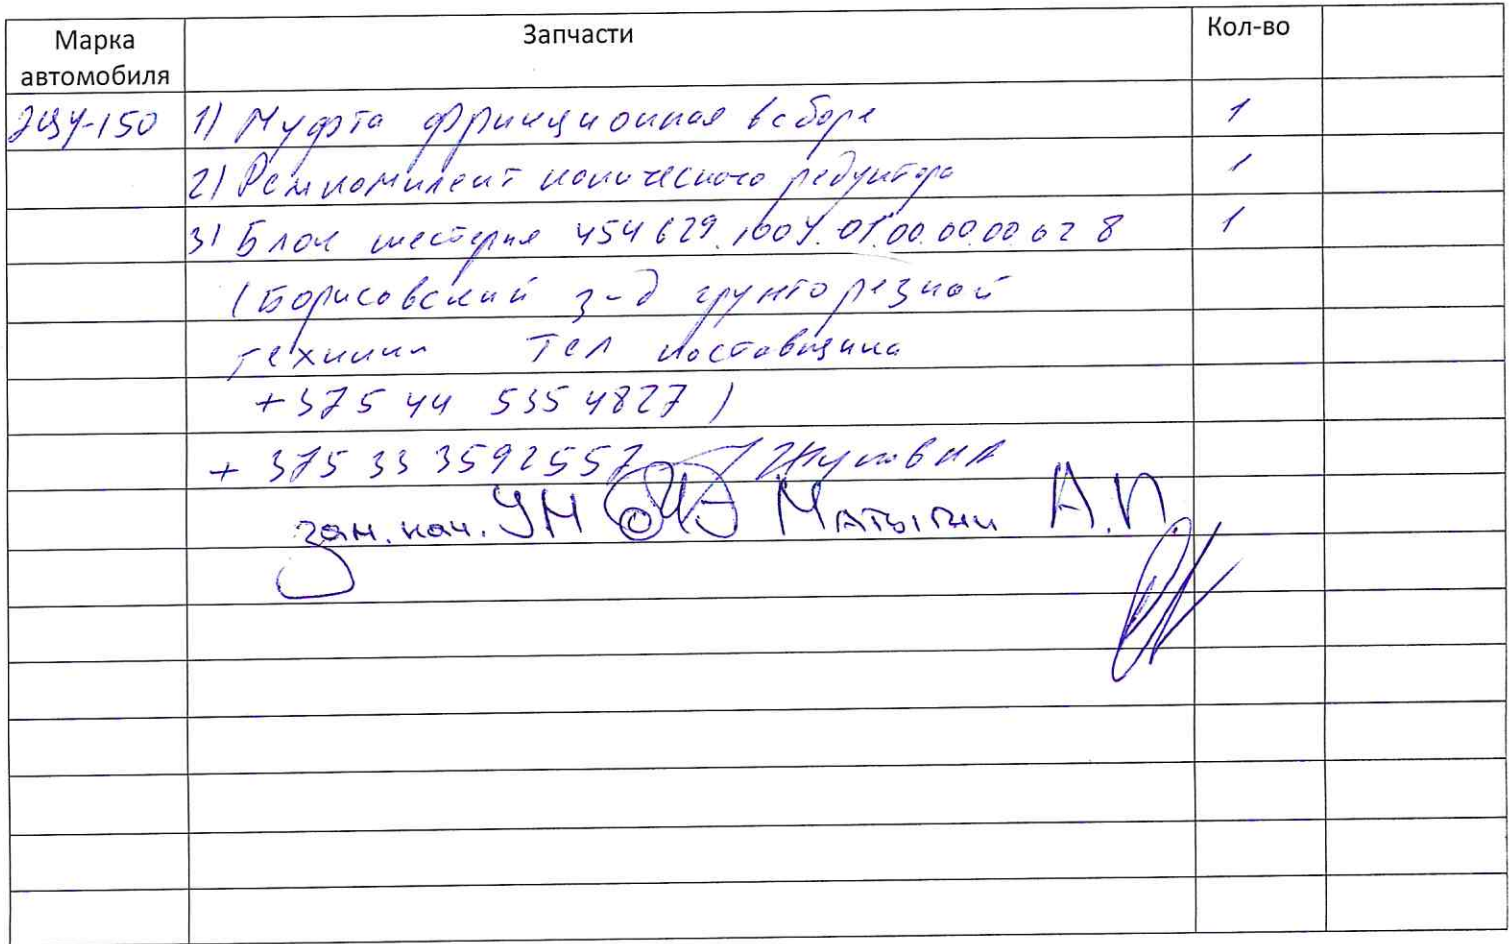 Марка автомобиля Запчасти Кол-во
ЭЦУ-150 1) Муфта фрикционная в сборе 1
2) Ремкомплект конического редуктора 1
3) Блок шестерня 454629.1004.01.00.00.00.028 1
(Борисовский з-д грунторезной
техники Тел поставщика
+375 44 535 4827)
+ 375 33 3592557
зам. нач. УМ Матыгин А.П.